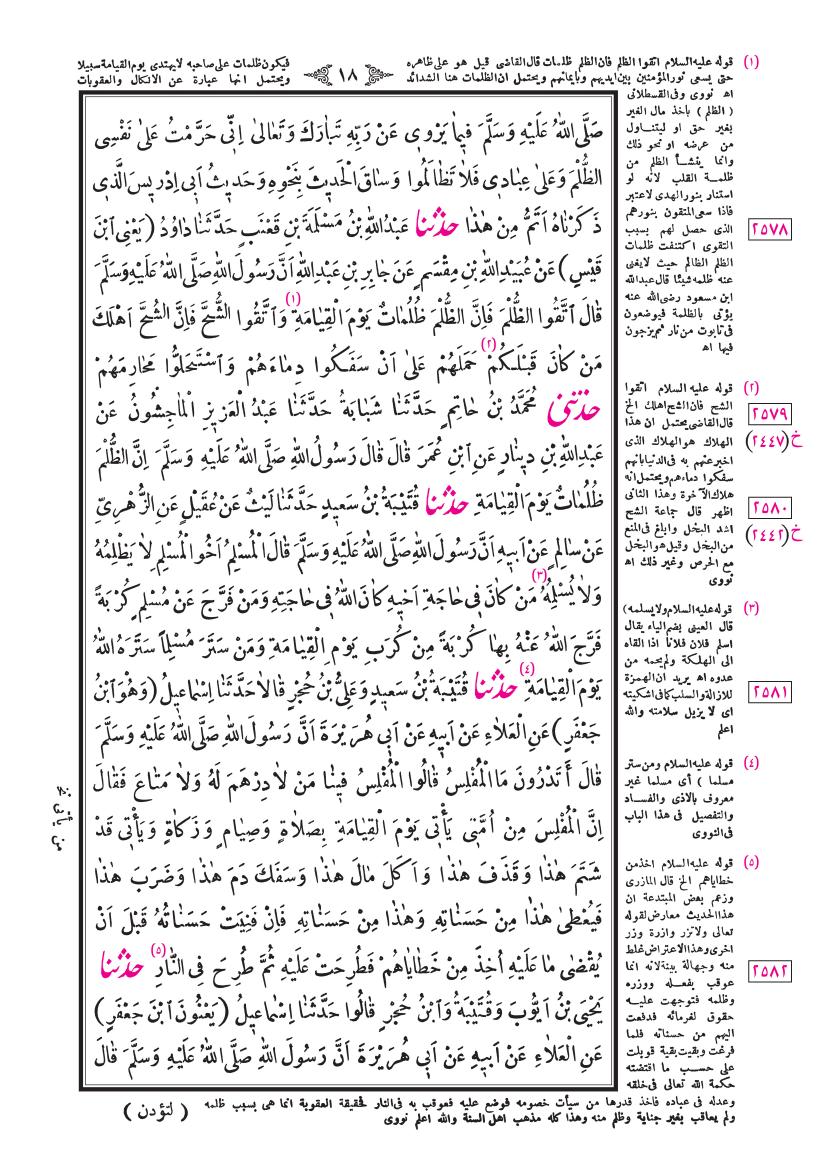 فيكون ظلمات على صاحبه لايهتدى يوم القيامة سبيلا
ويحتمل انها عبارة عن الانكال والعقوبات
١٨
(١) قوله عليه السلام اتقوا الظلم فان الظلم ظلمات قال القاضى قيل هو على ظاهره
حتى يسعى نور المؤمنين بين ايديهم وبايمانهم ويحتمل ان الظلمات هنا الشدائد
اه نووى وفى القسطلانى
(الظلم) باخذ مال الغير
بغير حق او ليتناول
من عرضه او نحو ذلك
وانما ينشأ الظلم من
ظلمة القلب لانه لو
استنار بنور الهدى لاعتبر
فاذا سعى المتقون بنورهم
الذى حصل لهم بسبب
التقوى اكتنفت ظلمات
الظلم الظالم حيث لايغنى
عنه ظلمه شيئا قال عبدالله
ابن مسعود رضى الله عنه
يؤتى بالظلمة فيوضعون
فى تابوت من نار ثم يزجون
فيها اه
(٢) قوله عليه السلام اتقوا
الشح فان الشح اهلك الخ
قال القاضى يحتمل ان هذا
الهلاك هو الهلاك الذى
اخبر عنهم به فى الدنيا بانهم
سفكوا دماءهم ويحتمل انه
هلاك الآخرة وهذا الثانى
اظهر قال جماعة الشح
اشد البخل وابلغ فى المنع
من البخل وقيل هو البخل
مع الحرص وغير ذلك اه
نووى
(٣) قوله عليه السلام ولا يسلمه)
قال العينى بضم الياء يقال
اسلم فلان فلانا اذا القاه
الى الهلكة ولم يحمه من
عدوه اه يريد ان الهمزة
للازالة والسلب كما فى اشكيته
اى لا يزيل سلامته والله
اعلم
(٤) قوله عليه السلام ومن ستر
مسلما) أى مسلما غير
معروف بالاذى والفساد
والتفصيل فى هذا الباب
فى النووى
(٥) قوله عليه السلام اخذ من
خطاياهم الخ قال المازرى
وزعم بعض المبتدعة ان
هذا الحديث معارض لقوله
تعالى ولاتزر وازرة وزر
اخرى وهذا الاعتراض غلط
منه وجهالة بينة لانه انما
عوقب بفعله ووزره
وظلمه فتوجهت عليه
حقوق لغرمائه فدفعت
اليهم من حسناته فلما
فرغت وبقيت بقية قوبلت
على حسب ما اقتضته
حكمة الله تعالى فى خلقه
٢٥٧٨
٢٥٧٩
خ (٢٤٤٧)
٢٥٨٠
خ (٢٤٤٢)
٢٥٨١
٢٥٨٢
صَلَّى اللهُ عَلَيْهِ وَسَلَّمَ فِيمَا يَرْوِى عَنْ رَبِّهِ تَبَارَكَ وَتَعَالَى اِنِّى حَرَّمْتُ عَلَى نَفْسِى
الظُّلْمَ وَعَلَى عِبَادِى فَلَا تَظَالَمُوا وَسَاقَ الْحَدِيثَ بِنَحْوِهِ وَحَدِيثُ اَبِى اِدْرِيسَ الَّذِى
ذَكَرْنَاهُ اَتَمُّ مِنْ هٰذَا حدثنا عَبْدُاللهِ بْنُ مَسْلَمَةَ بْنِ قَعْنَبٍ حَدَّثَنَا دَاوُدُ (يَعْنِى ابْنَ
قَيْسٍ) عَنْ عُبَيْدِاللهِ بْنِ مِقْسَمٍ عَنْ جَابِرِ بْنِ عَبْدِاللهِ اَنَّ رَسُولَ اللهِ صَلَّى اللهُ عَلَيْهِ وَسَلَّمَ
قَالَ اتَّقُوا الظُّلْمَ فَاِنَّ الظُّلْمَ ظُلُمَاتٌ يَوْمَ الْقِيَامَةِ (١) وَاتَّقُوا الشُّحَّ فَاِنَّ الشُّحَّ اَهْلَكَ
مَنْ كَانَ قَبْلَكُمْ (٢) حَمَلَهُمْ عَلَى اَنْ سَفَكُوا دِمَاءَهُمْ وَاسْتَحَلُّوا مَحَارِمَهُمْ
حدثنى مُحَمَّدُ بْنُ حَاتِمٍ حَدَّثَنَا شَبَابَةُ حَدَّثَنَا عَبْدُ الْعَزِيزِ الْمَاجِشُونُ عَنْ
عَبْدِاللهِ بْنِ دِينَارٍ عَنِ ابْنِ عُمَرَ قَالَ قَالَ رَسُولُ اللهِ صَلَّى اللهُ عَلَيْهِ وَسَلَّمَ اِنَّ الظُّلْمَ
ظُلُمَاتٌ يَوْمَ الْقِيَامَةِ حدثنا قُتَيْبَةُ بْنُ سَعِيدٍ حَدَّثَنَا لَيْثٌ عَنْ عُقَيْلٍ عَنِ الزُّهْرِىِّ
عَنْ سَالِمٍ عَنْ اَبِيهِ اَنَّ رَسُولَ اللهِ صَلَّى اللهُ عَلَيْهِ وَسَلَّمَ قَالَ الْمُسْلِمُ اَخُو الْمُسْلِمِ لَا يَظْلِمُهُ
وَلَا يُسْلِمُهُ (٣) مَنْ كَانَ فِى حَاجَةِ اَخِيهِ كَانَ اللهُ فِى حَاجَتِهِ وَمَنْ فَرَّجَ عَنْ مُسْلِمٍ كُرْبَةً
فَرَّجَ اللهُ عَنْهُ بِهَا كُرْبَةً مِنْ كُرَبِ يَوْمِ الْقِيَامَةِ وَمَنْ سَتَرَ مُسْلِمًا سَتَرَهُ اللهُ
يَوْمَ الْقِيَامَةِ (٤) حدثنا قُتَيْبَةُ بْنُ سَعِيدٍ وَعَلِىُّ بْنُ حُجْرٍ قَالَا حَدَّثَنَا اِسْمَاعِيلُ (وَهُوَ ابْنُ
جَعْفَرٍ) عَنِ الْعَلَاءِ عَنْ اَبِيهِ عَنْ اَبِى هُرَيْرَةَ اَنَّ رَسُولَ اللهِ صَلَّى اللهُ عَلَيْهِ وَسَلَّمَ
قَالَ أَتَدْرُونَ مَا الْمُفْلِسُ قَالُوا الْمُفْلِسُ فِينَا مَنْ لَا دِرْهَمَ لَهُ وَلَا مَتَاعَ فَقَالَ
اِنَّ الْمُفْلِسَ مِنْ اُمَّتِى يَأْتِى يَوْمَ الْقِيَامَةِ بِصَلَاةٍ وَصِيَامٍ وَزَكَاةٍ وَيَأْتِى قَدْ
شَتَمَ هٰذَا وَقَذَفَ هٰذَا وَاَكَلَ مَالَ هٰذَا وَسَفَكَ دَمَ هٰذَا وَضَرَبَ هٰذَا
فَيُعْطَى هٰذَا مِنْ حَسَنَاتِهِ وَهٰذَا مِنْ حَسَنَاتِهِ فَاِنْ فَنِيَتْ حَسَنَاتُهُ قَبْلَ اَنْ
يُقْضَى مَا عَلَيْهِ اُخِذَ مِنْ خَطَايَاهُمْ فَطُرِحَتْ عَلَيْهِ ثُمَّ طُرِحَ فِى النَّارِ (٥) حدثنا
يَحْيَى بْنُ اَيُّوبَ وَقُتَيْبَةُ وَابْنُ حُجْرٍ قَالُوا حَدَّثَنَا اِسْمَاعِيلُ (يَعْنُونَ ابْنَ جَعْفَرٍ)
عَنِ الْعَلَاءِ عَنْ اَبِيهِ عَنْ اَبِى هُرَيْرَةَ اَنَّ رَسُولَ اللهِ صَلَّى اللهُ عَلَيْهِ وَسَلَّمَ قَالَ
من يأتى نخ
وعدله فى عباده فاخذ قدرها من سيأت خصومه فوضع عليه فعوقب به فى النار فحقيقة العقوبة انما هى بسبب ظلمه
ولم يعاقب بغير جناية وظلم منه وهذا كله مذهب اهل السنة والله اعلم نووى
(لتؤدن)